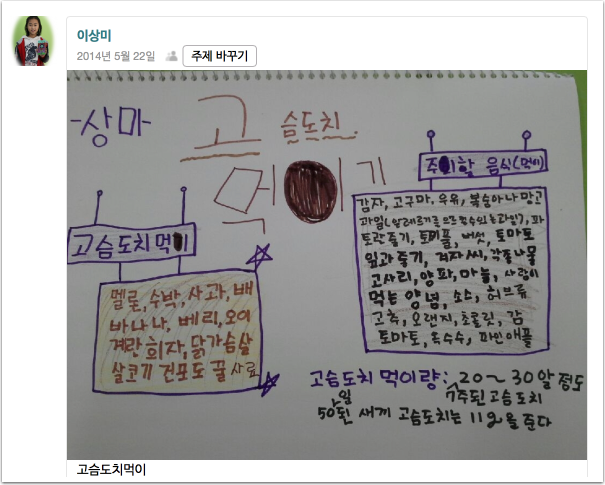 이상미
2014년 5월 22일 주제 바꾸기
-상미-
고슴도치
먹이기
고슴도치먹이
멜론, 수박, 사과, 배
바나나, 베리, 오이
계란 흰자, 닭가슴살
살코기 건포도 꿀 사료
주의할 음식(먹이)
감자, 고구마, 우유, 복숭아나 망고
과일(알레르기를 과일), 파
토란줄기, 버섯, 토마토
잎과 줄기, 겨자씨, 각종나물
고사리, 양파, 마늘, 사람이
먹는 양념, 소스, 허브류
고추, 오랜지, 초콜릿, 감
토마토, 옥수수, 파인애플
고슴도치 먹이량: 20~30알 정도
7주된 고슴도치
50일된 새끼 고슴도치는 을 준다
고슴도치먹이